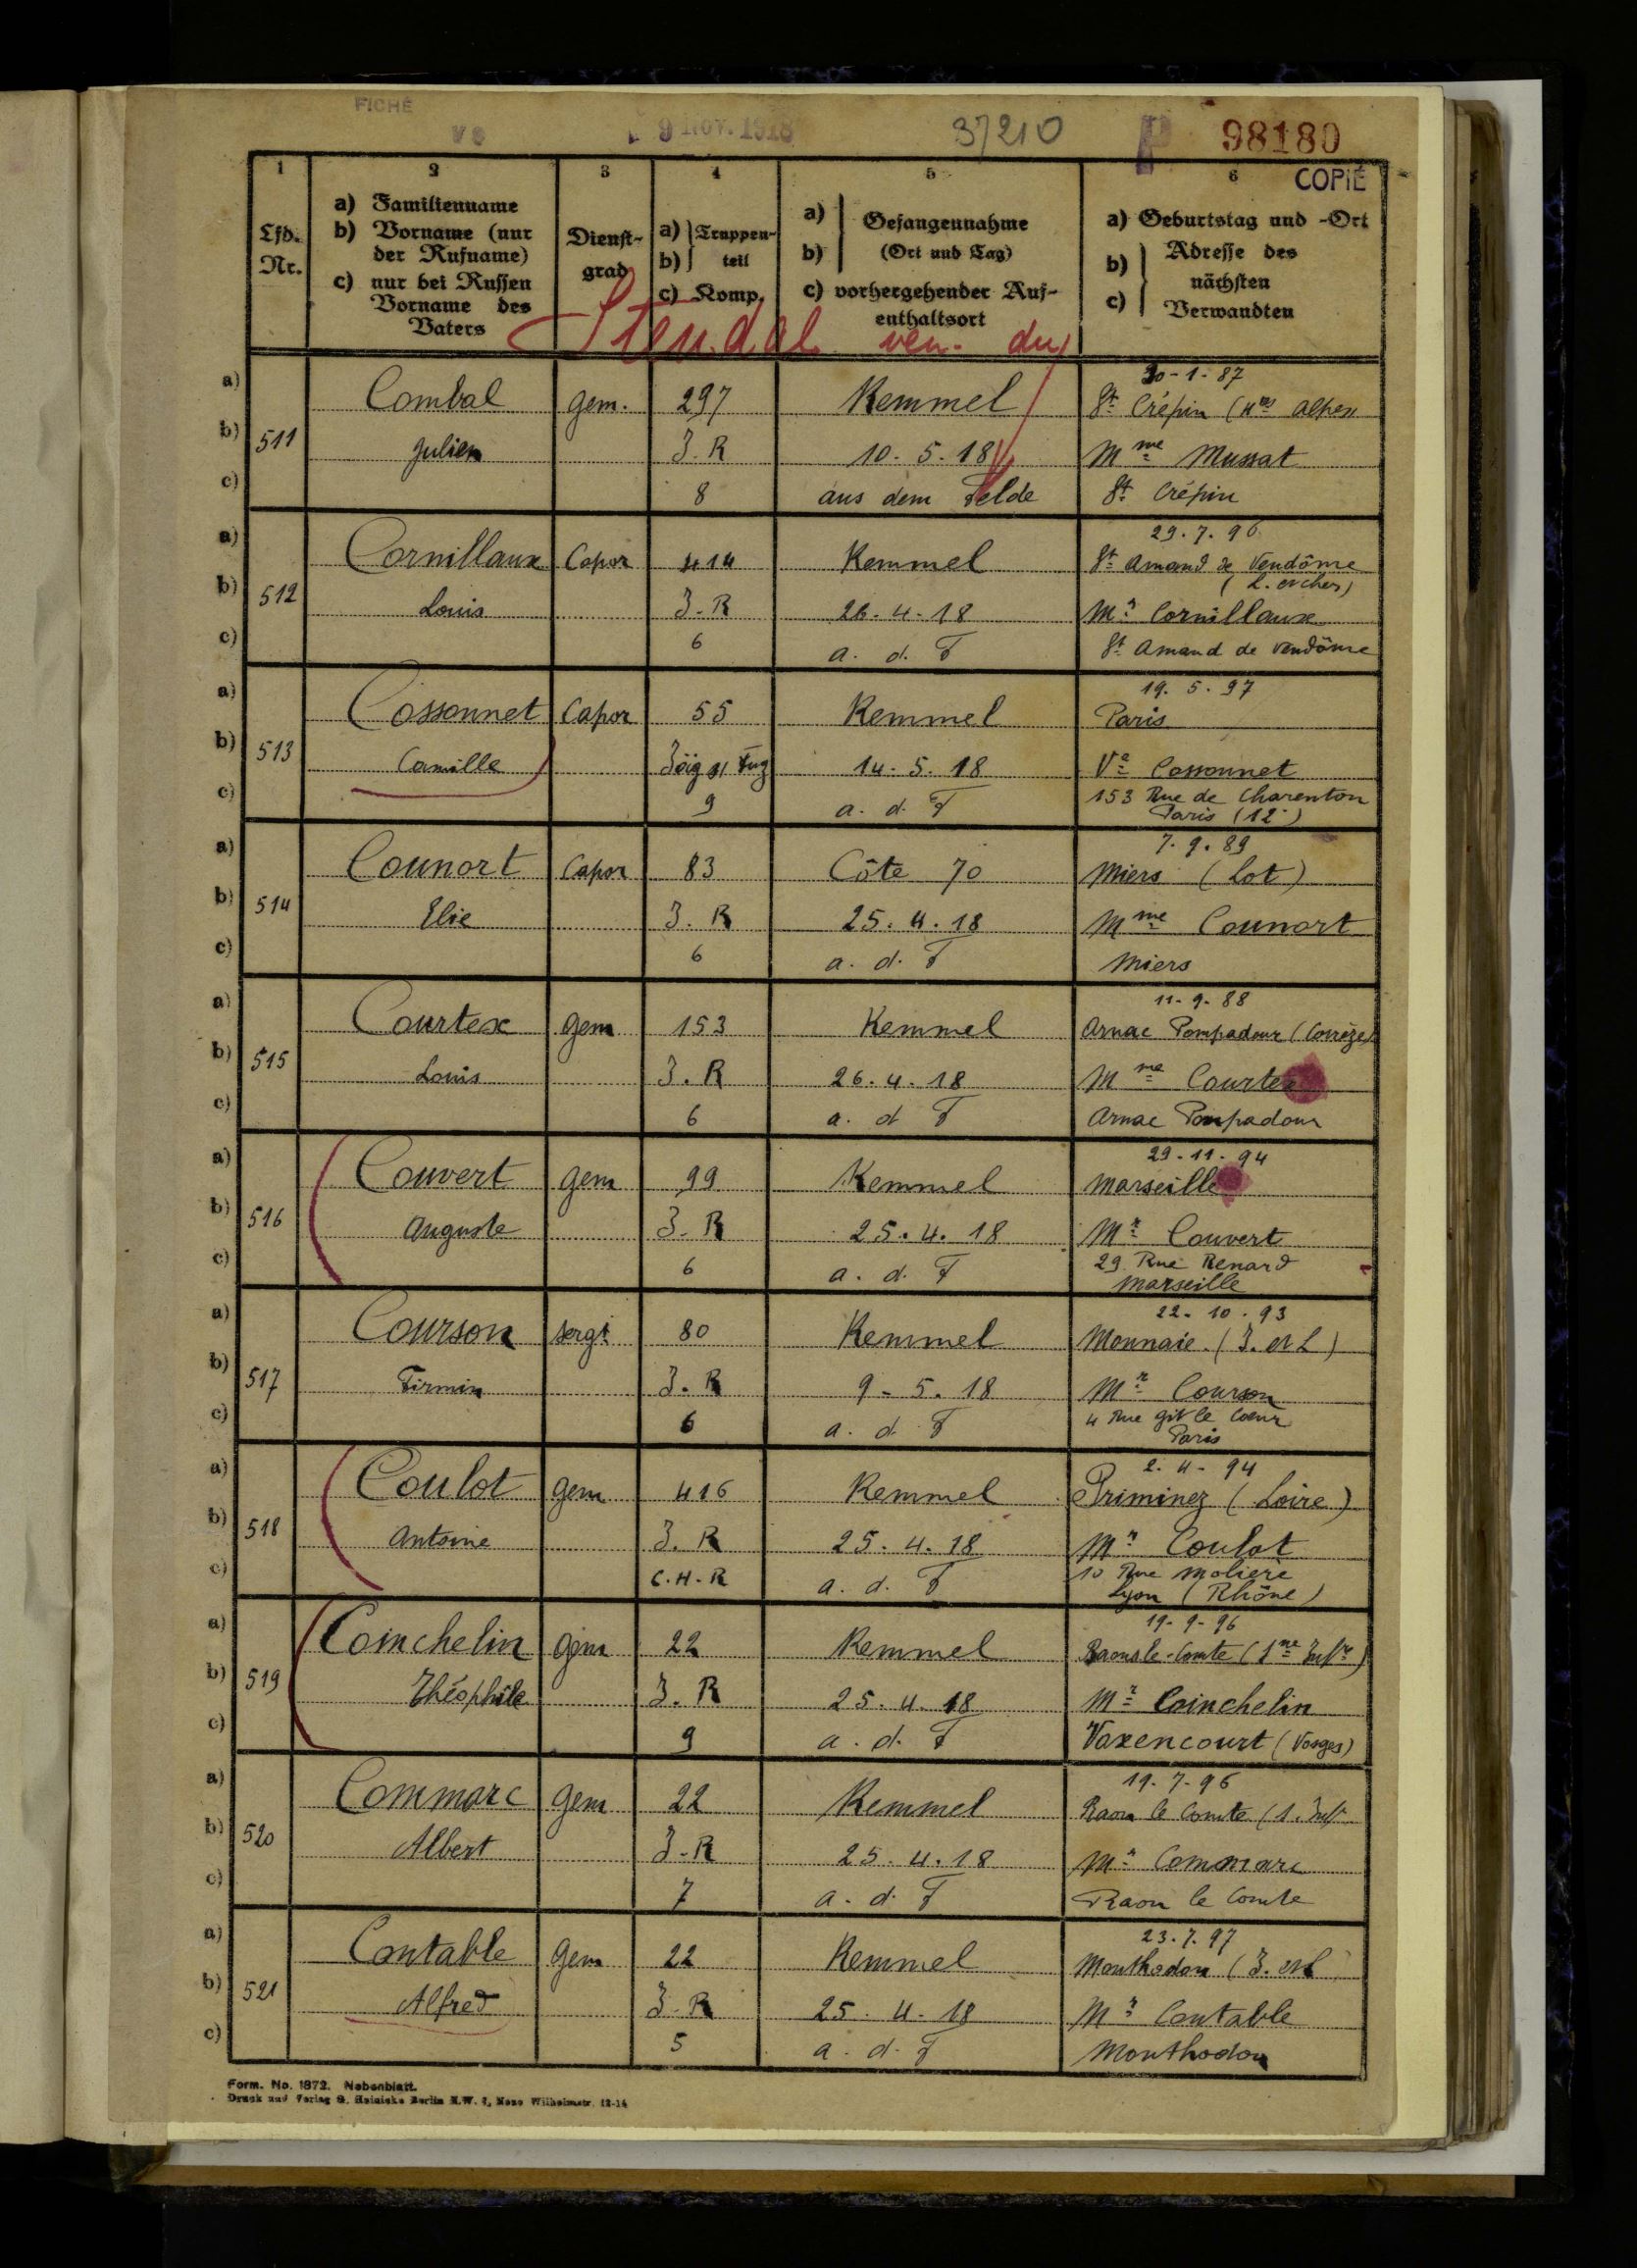 FICHÉ
9 Nov. 1918
37210
P 98180
COPIÉ
1 2 3 4 5 6
Lfd. Nr.
a) Familienname
b) Vorname (nur der Rufname)
c) nur bei Russen Vorname des Vaters
Dienstgrad
a) b) Truppenteil
c) Komp.
a) b) Gefangennahme (Ort und Tag)
c) vorhergehender Aufenthaltsort
a) Geburtstag und -Ort
b) c) Adresse des nächsten Verwandten
Stendal ven. du
30-1-87
a) Combal gem. 297 Kemmel St Crépin (Htes Alpes
b) 511 Julien J. R 10. 5. 18 Mme Mussat
c) 8 aus dem Felde St Crépin
29.7.96
a) Cornillaux Capor 414 Kemmel St Amand de Vendôme
(L. et cher)
b) 512 Louis J. R 26. 4. 18 Mr Cornillaux
c) 6 a. d. F St Amand de Vendôme
19. 5. 97
a) Cossonnet Capor 55 Kemmel Paris
b) 513 Camille 14. 5. 18 Ve Cossonnet
c) 9 a. d. F 153 Rue de Charenton
Paris (12°)
7. 9. 89
a) Counort Capor 83 Côte 70 Miers (Lot)
b) 514 Elie J. R 25. 4. 18 Mme Counort
c) 6 a. d. F Miers
11-9-88
a) Courtex gem 153 Kemmel Arnac Pompadour (Corrèze)
b) 515 Louis J. R 26. 4. 18 Mme Courtex
c) 6 a. d F Arnac Pompadour
29-11-94
a) Couvert gem 99 Kemmel Marseille
b) 516 Auguste J. R 25. 4. 18 Mr Couvert
c) 6 a. d. F 29 Rue Renard
Marseille
22-10.93
a) Courson sergt 80 Kemmel Monnaie (J. et L)
b) 517 Firmin J. R 9-5. 18 Mr Courson
c) 6 a. d. F 4 Rue git le Cœur
Paris
2. 4- 94
a) Coulot gem 416 Kemmel Priminez (Loire)
b) 518 Antoine J. R 25. 4. 18 Mr Coulot
c) C.H.R a. d. F 10 Rue Molière
Lyon (Rhône)
19-9-96
a) Coinchelin gem 22 Kemmel
b) 519 Théophile J. R 25. 4. 18 Mr Coinchelin
c) 9 a. d. F Vaxencourt (Vosges)
19.7-96
a) Commarc gem 22 Kemmel Raon le Comte
b) 520 Albert J-R 25. 4. 18 Mr Commarc
c) 7 a. d. F Raon le Comte
23.7.97
a) Contable gem 22 Kemmel Monthodon (J. et L
b) 521 Alfred J-R 25. 4. 18 Mr Contable
c) 5 a. d. F Monthodon
Form. No. 1872. Nebenblatt.
Druck und Verlag Berlin N.W. 7, Neue Wilhelmstr. 12-14